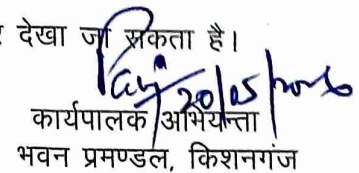 देखा जा सकता है।
20/05/2026
कार्यपालक अभियन्ता
भवन प्रमण्डल, किशनगंज